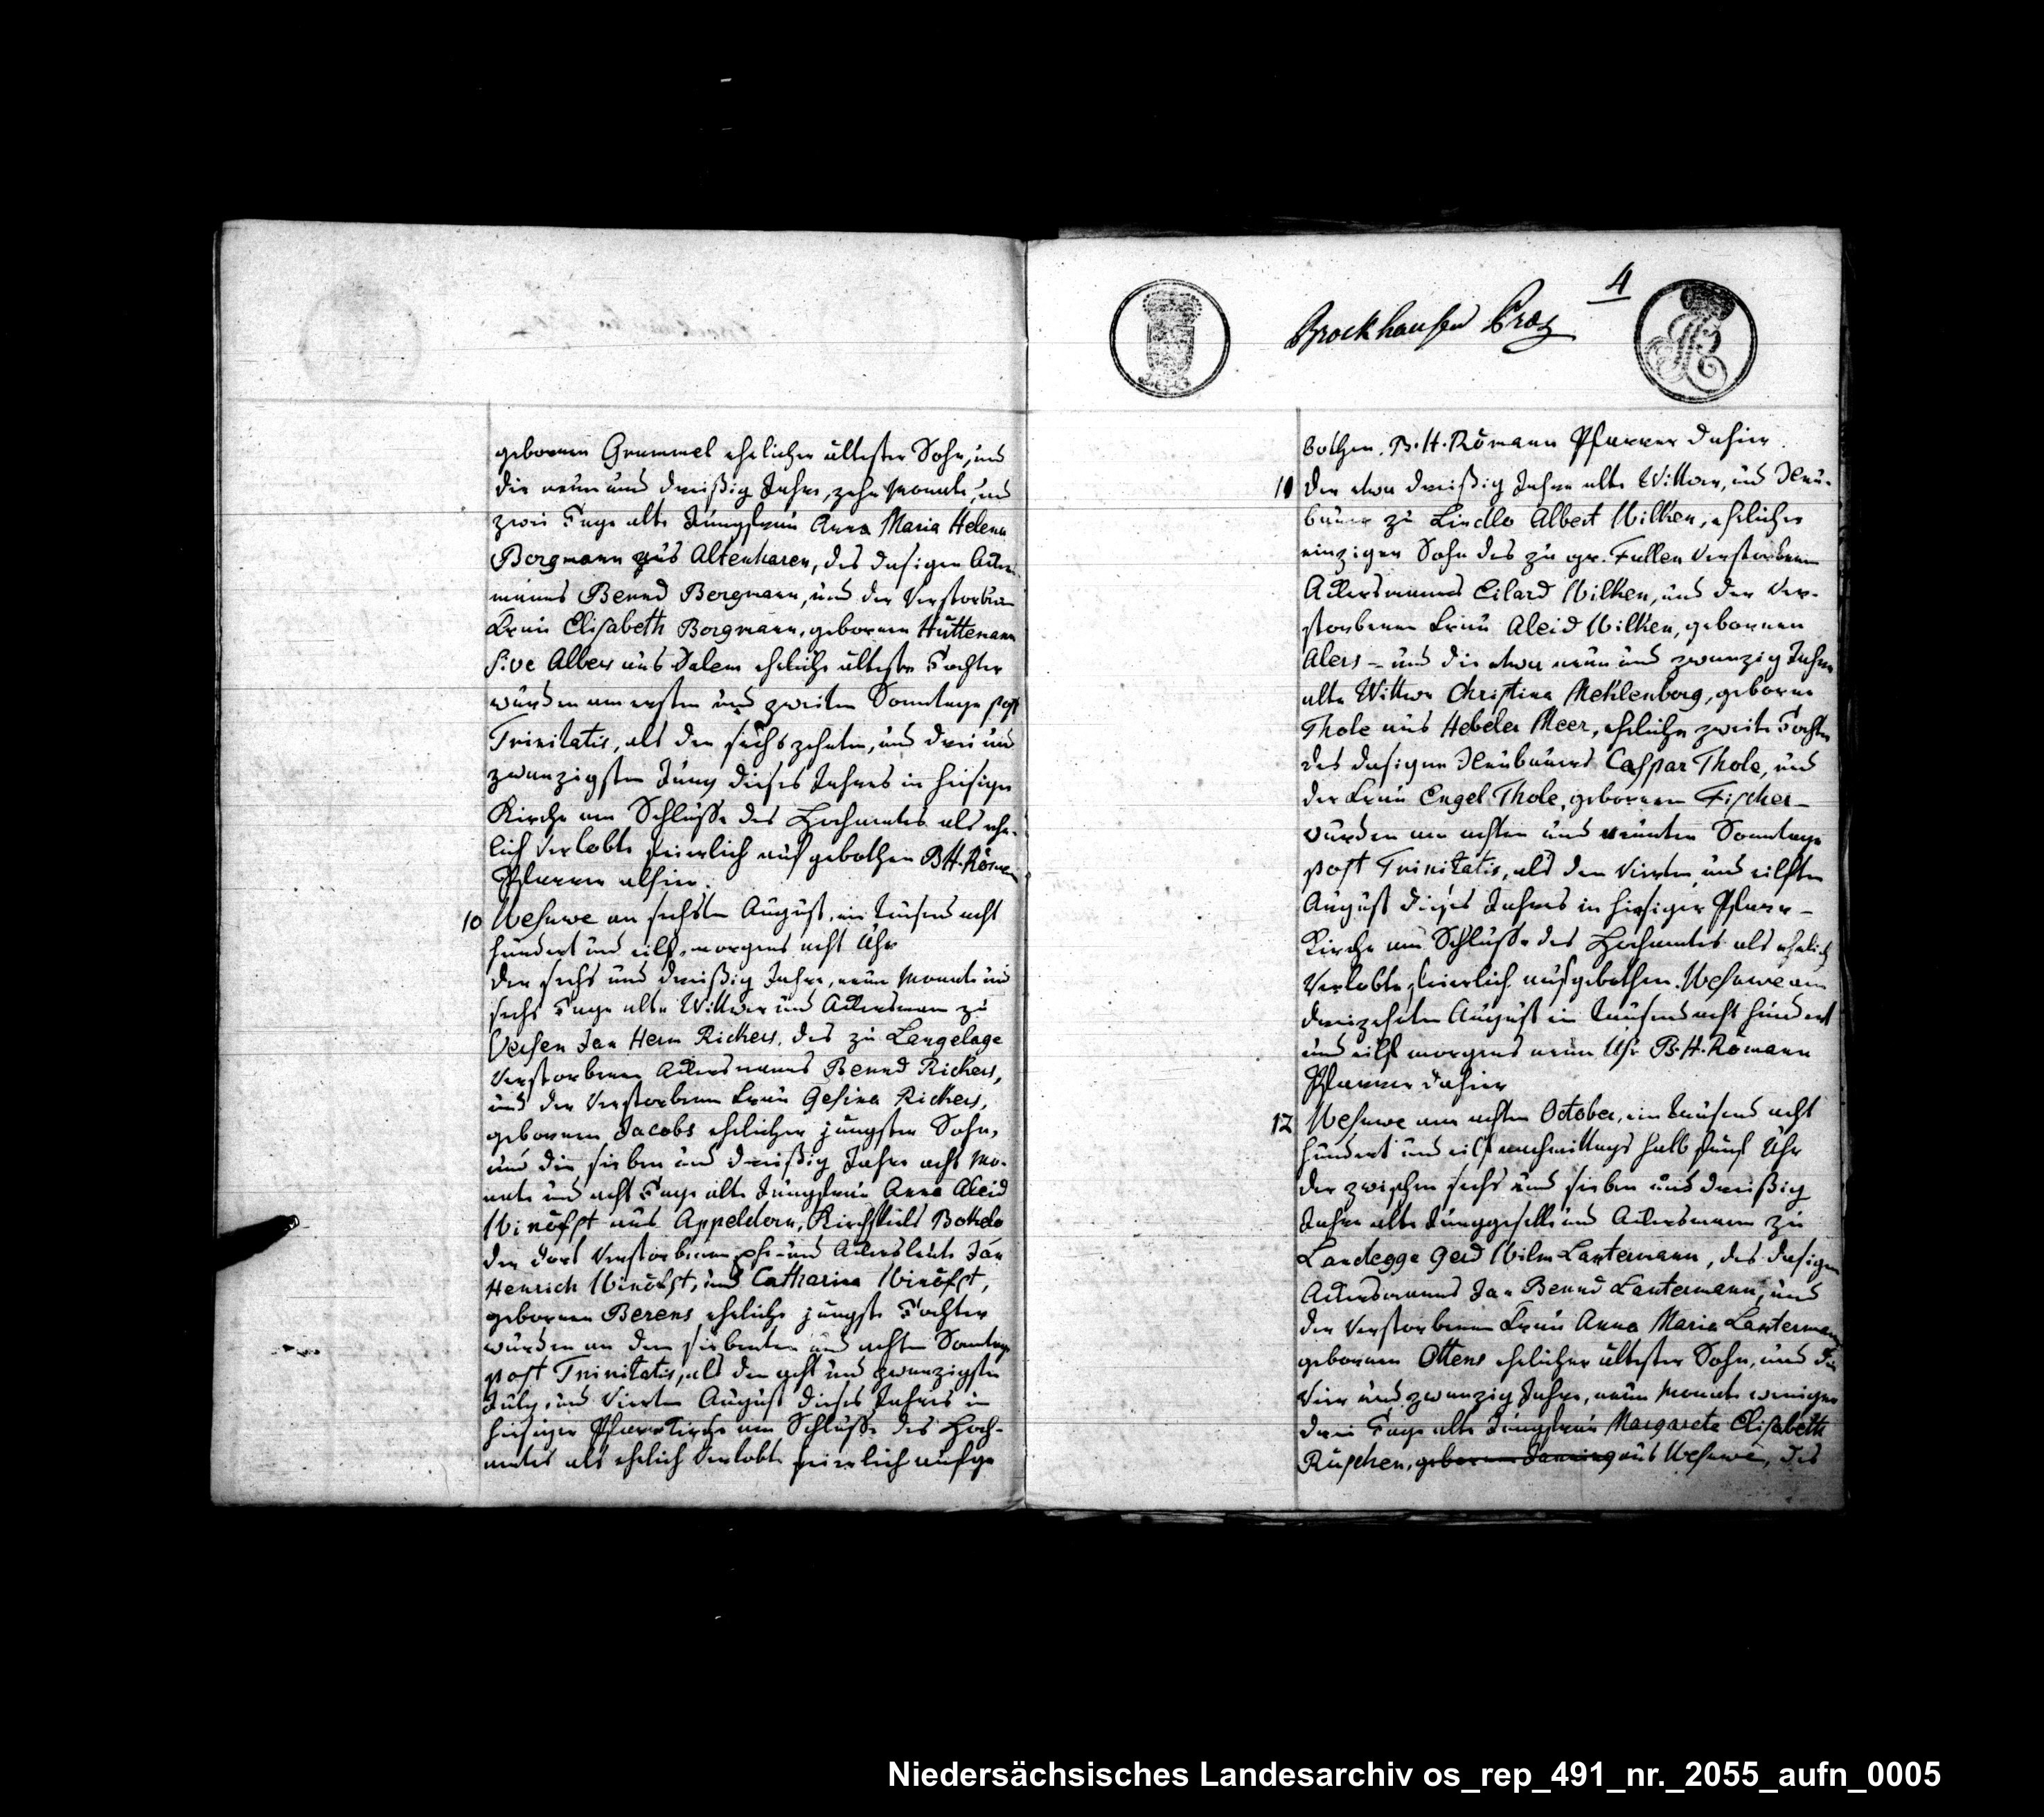 gebornen Grummel ehelicher ältester Sohn, und
die neun und dreißig Jahre, zehn Monate, und
zwei Tage alte Jungfrau Anna Maria Helena
Borgmann aus Altenharen, des dasigen Acker-
manns Bernd Borgmann, und der verstorbenen
Frau Elisabeth Borgmann, gebornen Hüttemann
sive Albers aus Dalem eheliche älteste Tochter
wurden am ersten und zweiten Sonntage post
Trinitatis, als den sechszehnten, und drei und
zwanzigsten Juny dieses Jahres in hiesiger
Kirche am Schlusse des Hochamtes als ehe-
lich Verlobte feierlich aufgebothen BH. Römann
Pfarrer alhier.
10 Wesuwe am sechsten August, ein tausend acht
hundert und eilf, morgens acht Uhr
der sechs und dreißig Jahre, neun Monate und
sechs Tage alte Wittwer und Ackersmann zu
Versen Jan Herm Rickers, des zu Langelage
verstorbenen Ackersmanns Bernd Rickers,
und der verstorbenen Frau Gesina Rickers,
gebornen Jacobs ehelicher jüngster Sohn,
und die sieben und dreißig Jahre acht Mo-
nate und acht Tage alte Jungfrau Anna Aleid
aus Appeldorn, Kirchspiels Bokelo
der dort verstorbenen Ehe- und Ackersleute Jan
Henrich und Catharina
gebornen Berens eheliche jüngste Tochter
wurden an dem siebenten und achten Sonntage
post Trinitatis, als den acht und zwanzigsten
July, und vierten August dieses Jahres in
hiesiger Pfarrkirche am Schlusse des Hoch-
amtes als ehelich Verlobte feierlich aufge
4
Brockhausen
bothen. B. H. Römann Pfarrer dahier.
11 Der etwa dreißig Jahre alte Wittwer, und Neu-
bauer zu Lindlo Albert Wilken, ehelicher
einziger Sohn des zu gr. Fullen verstorbenen
Ackersmanns Eilard Wilken, und der ver-
storbenen Frau Aleid Wilken, gebornen
Alers – und die etwa neun und zwanzig Jahre
alte Wittwe Christina Mehlenborg, geborne
Thole aus Hebeler Meer, eheliche zweite Tochter
des dasigen Neubauers Caspar Thole, und
der Frau Engel Thole, gebornen Fischer –
wurden am achten und neunten Sonntage
post Trinitatis, als den vierten, und eilften
August dieses Jahres in hiesiger Pfarr-
Kirche am Schlusse des Hochamtes als ehelich
Verlobte feierlich aufgebothen. Wesuwe am
dreizehnten August ein tausend acht hundert
und eilf morgens neun Uhr B. H. Römann
Pfarrer dahier
12 Wesuwe am achten October, ein tausend acht
hundert und eilf nachmittags halb fünf Uhr
der zwischen sechs und sieben und dreißig
Jahre alte Junggeselle und Ackersmann zu
Landegge Gerd Wilm Lantemann, des dasigen
Ackersmanns Jan Bernd Lantemann, und
der verstorbenen Frau Anna Maria Lantemann
gebornen Ottens ehelicher ältester Sohn, und die
vier und zwanzig Jahre, neun Monate weniger
drei Tage alte Jungfrau Margareta Elisabeth
Rüschen, geborne aus Wesuwe, des
Niedersächsisches Landesarchiv os_rep_491_nr._2055_aufn_0005